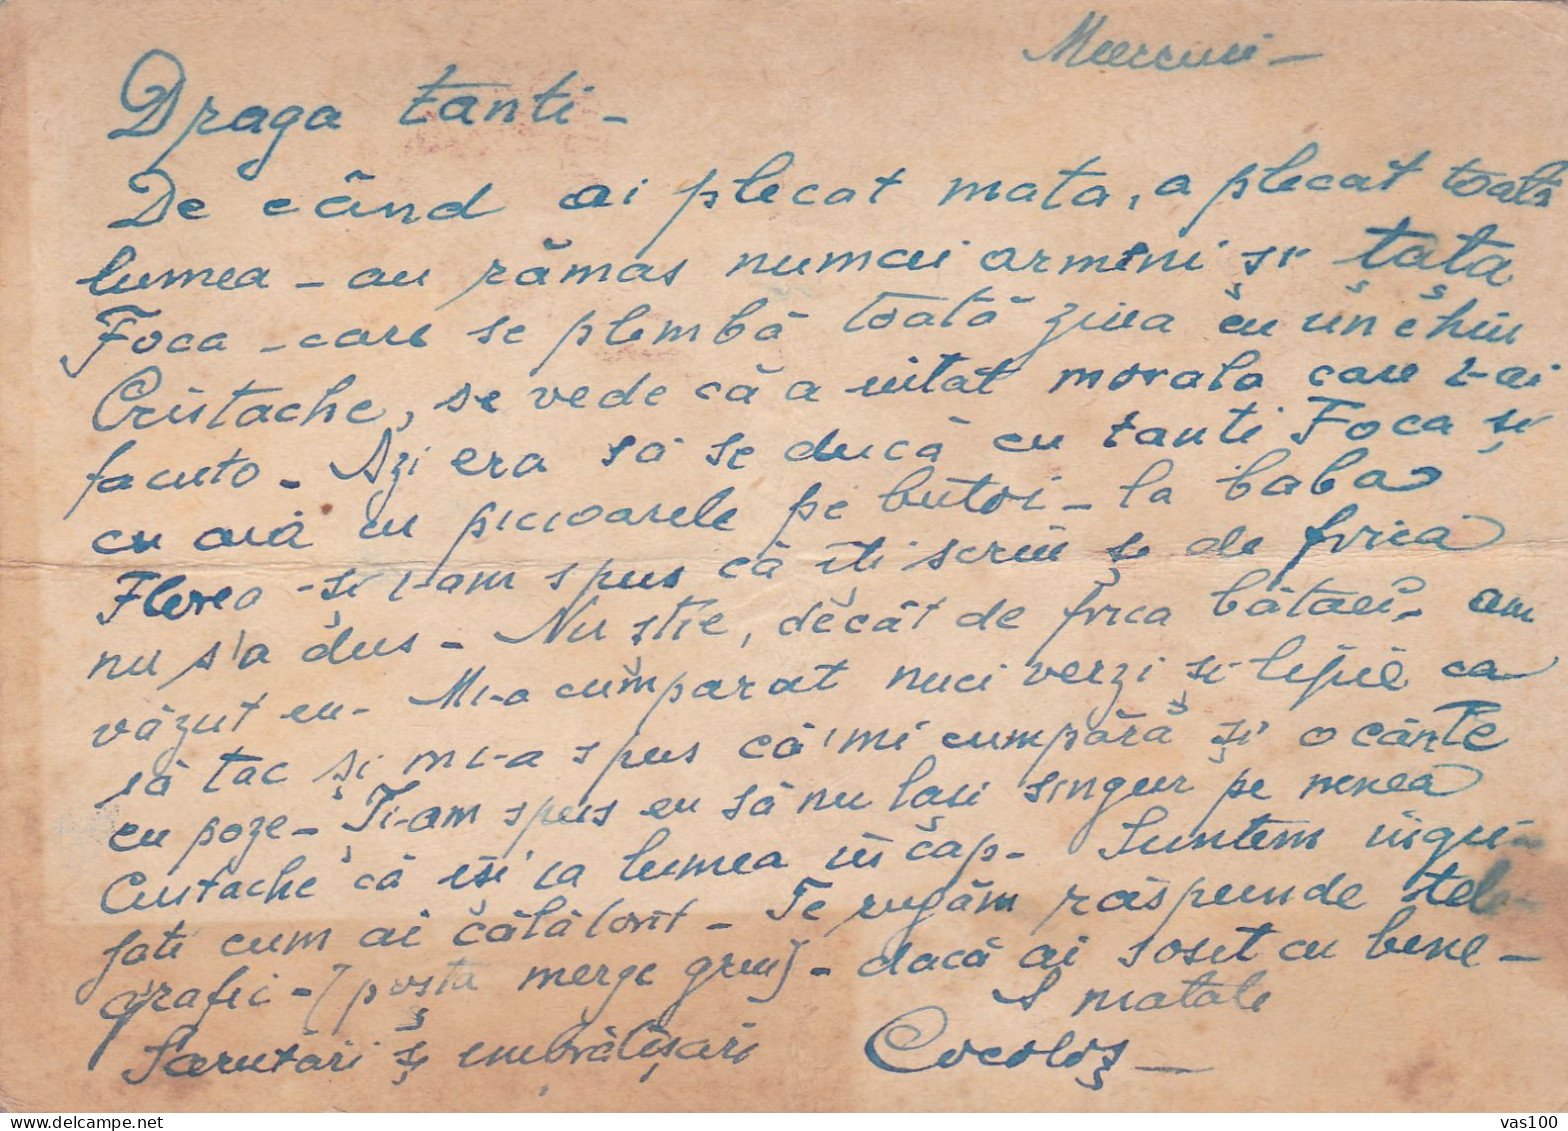 Miercuri -
Draga tanti -
De când ai plecat mata, a plecat toată
lumea - au rămas numai armeni și tata
Foca - care se plembă toată ziua cu unchiu
Cristache, se vede că a uitat morala care i-ai
facuto - Azi era să se ducă cu tanti Foca și
cu aia cu picioarele pe butoi - la baba
Florea - și i-am spus că îți scriu și de frica
nu s'a dus - Nu știe, decât de frica bătaei, am
văzut eu - Mi-a cumpărat nuci verzi și lipie ca
să tac și mi-a spus că 'mi cumpără și o cărțe
cu poze - Ți-am spus eu să nu lași singur pe nenea
Custache că îsi ia lumea în cap - Suntem ingri-
jati cum ai călătorit - Te rugăm răspunde tele-
grafic - (poșta merge greu) - dacă ai sosit cu bene -
S matale
Sarutari și îmbrățișari Cocoloș -
vas100